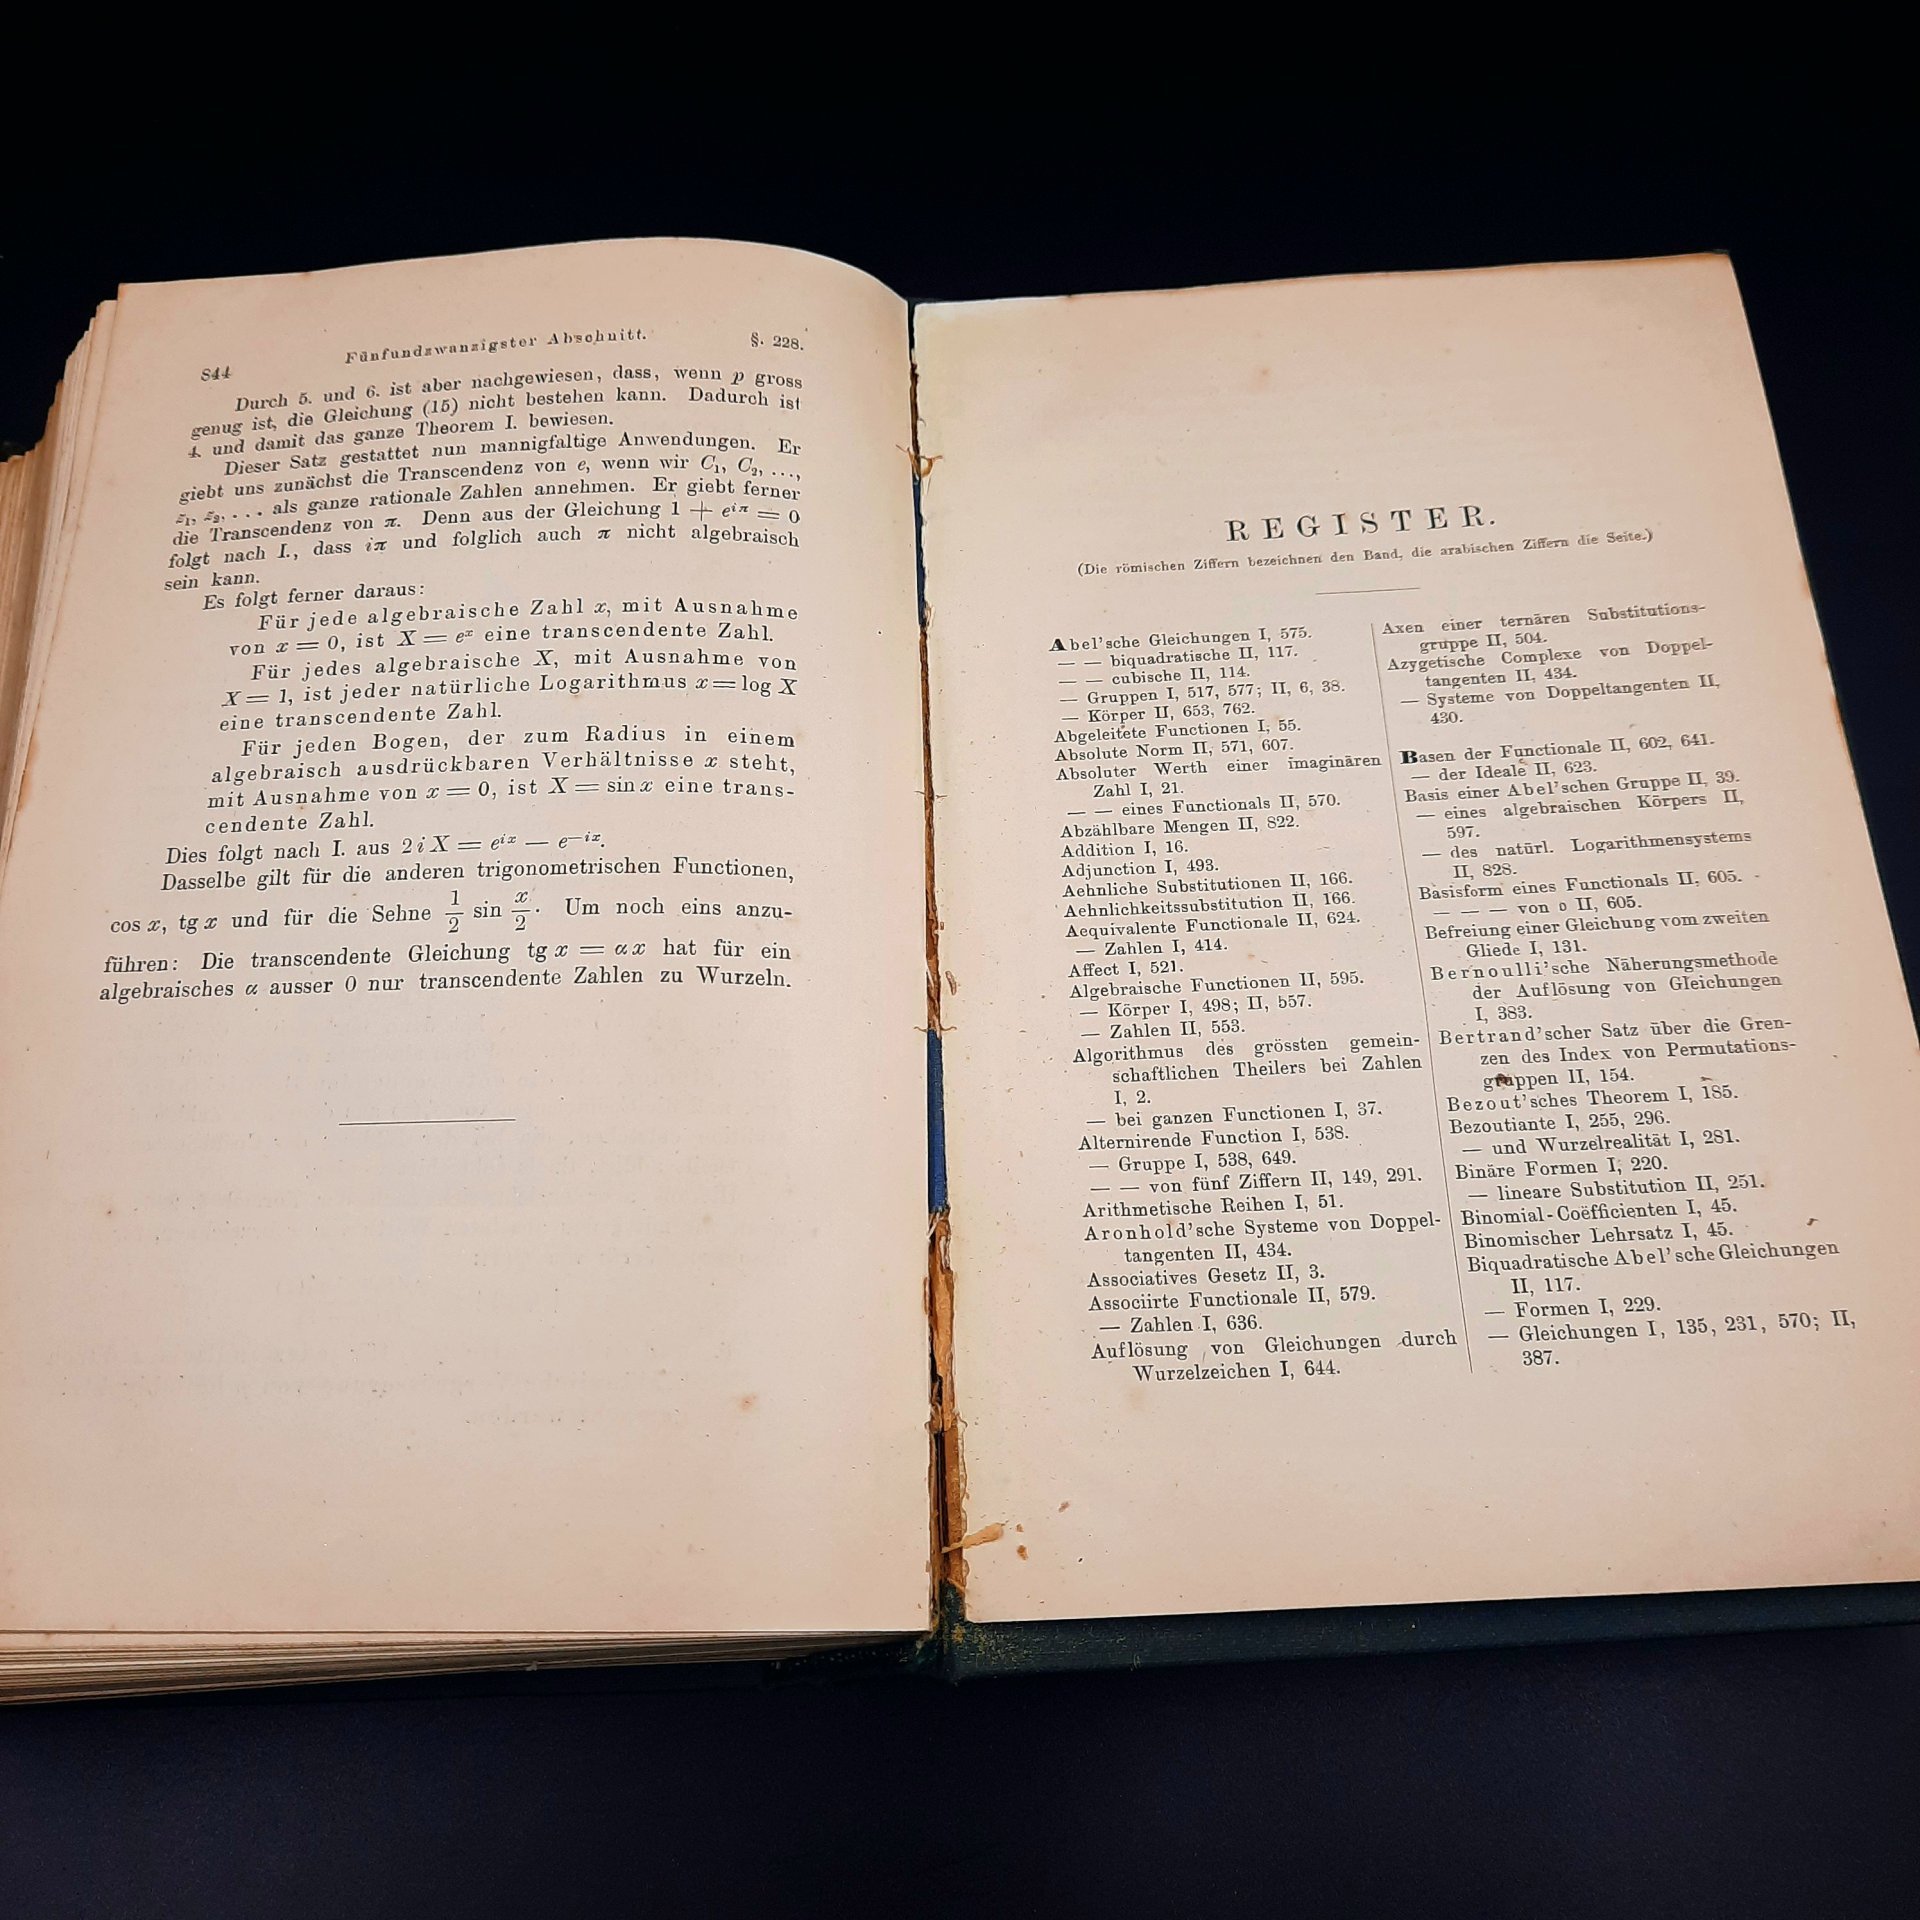 844 Fünfundzwanzigster Abschnitt. §. 228.
Durch 5. und 6. ist aber nachgewiesen, dass, wenn p gross
genug ist, die Gleichung (15) nicht bestehen kann. Dadurch ist
4. und damit das ganze Theorem I. bewiesen.
Dieser Satz gestattet nun mannigfaltige Anwendungen. Er
giebt uns zunächst die Transcendenz von e, wenn wir C₁, C₂, ...,
z₁, z₂, ... als ganze rationale Zahlen annehmen. Er giebt ferner
die Transcendenz von π. Denn aus der Gleichung 1 + e^{iπ} = 0
folgt nach I., dass iπ und folglich auch π nicht algebraisch
sein kann.
Es folgt ferner daraus:
Für jede algebraische Zahl x, mit Ausnahme
von x = 0, ist X = e^x eine transcendente Zahl.
Für jedes algebraische X, mit Ausnahme von
X = 1, ist jeder natürliche Logarithmus x = log X
eine transcendente Zahl.
Für jeden Bogen, der zum Radius in einem
algebraisch ausdrückbaren Verhältnisse x steht,
mit Ausnahme von x = 0, ist X = sin x eine trans-
cendente Zahl.
Dies folgt nach I. aus 2 i X = e^{ix} — e^{—ix}.
Dasselbe gilt für die anderen trigonometrischen Functionen,
cos x, tg x und für die Sehne 1/2 sin x/2. Um noch eins anzu-
führen: Die transcendente Gleichung tg x = α x hat für ein
algebraisches α ausser 0 nur transcendente Zahlen zu Wurzeln.
REGISTER.
(Die römischen Ziffern bezeichnen den Band, die arabischen Ziffern die Seite.)
Abel'sche Gleichungen I, 575.
— — biquadratische II, 117.
— — cubische II, 114.
— Gruppen I, 517, 577; II, 6, 38.
— Körper II, 653, 762.
Abgeleitete Functionen I, 55.
Absolute Norm II, 571, 607.
Absoluter Werth einer imaginären
Zahl I, 21.
— — eines Functionals II, 570.
Abzählbare Mengen II, 822.
Addition I, 16.
Adjunction I, 493.
Aehnliche Substitutionen II, 166.
Aehnlichkeitssubstitution II, 166.
Aequivalente Functionale II, 624.
— Zahlen I, 414.
Affect I, 521.
Algebraische Functionen II, 595.
— Körper I, 498; II, 557.
— Zahlen II, 553.
Algorithmus des grössten gemein-
schaftlichen Theilers bei Zahlen
I, 2.
— bei ganzen Functionen I, 37.
Alternirende Function I, 538.
— Gruppe I, 538, 649.
— — von fünf Ziffern II, 149, 291.
Arithmetische Reihen I, 51.
Aronhold'sche Systeme von Doppel-
tangenten II, 434.
Associatives Gesetz II, 3.
Associirte Functionale II, 579.
— Zahlen I, 636.
Auflösung von Gleichungen durch
Wurzelzeichen I, 644.
Axen einer ternären Substitutions-
gruppe II, 504.
Azygetische Complexe von Doppel-
tangenten II, 434.
— Systeme von Doppeltangenten II,
430.
Basen der Functionale II, 602, 641.
— der Ideale II, 623.
Basis einer Abel'schen Gruppe II, 39.
— eines algebraischen Körpers II,
597.
— des natürl. Logarithmensystems
II, 828.
Basisform eines Functionals II, 605.
— — — von o II, 605.
Befreiung einer Gleichung vom zweiten
Gliede I, 131.
Bernoulli'sche Näherungsmethode
der Auflösung von Gleichungen
I, 383.
Bertrand'scher Satz über die Gren-
zen des Index von Permutations-
gruppen II, 154.
Bezout'sches Theorem I, 185.
Bezoutiante I, 255, 296.
— und Wurzelrealität I, 281.
Binäre Formen I, 220.
— lineare Substitution II, 251.
Binomial-Coëfficienten I, 45.
Binomischer Lehrsatz I, 45.
Biquadratische Abel'sche Gleichungen
II, 117.
— Formen I, 229.
— Gleichungen I, 135, 231, 570; II,
387.